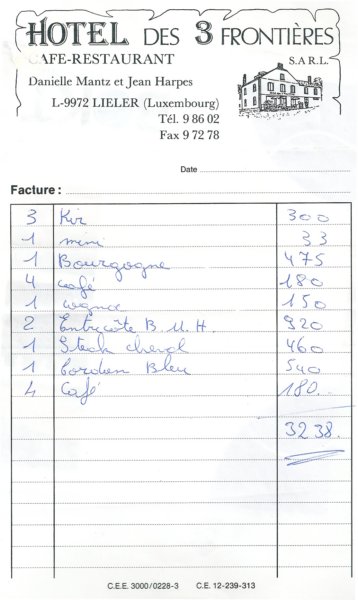 HOTEL DES 3 FRONTIÈRES
CAFE-RESTAURANT S.A R.L.
Danielle Mantz et Jean Harpes
L-9972 LIELER (Luxembourg)
Tél. 9 86 02
Fax 9 72 78
Date
Facture :
3 Kir 300
1 mini 33
1 Bourgogne 475
4 café 180
1 cognac 150
2 Entrecôte B.M.H. 920
1 Steck cheval 460
1 Cordon Bleu 540
4 Café 180.
3238.
C.E.E. 3000/0228-3 C.E. 12-239-313